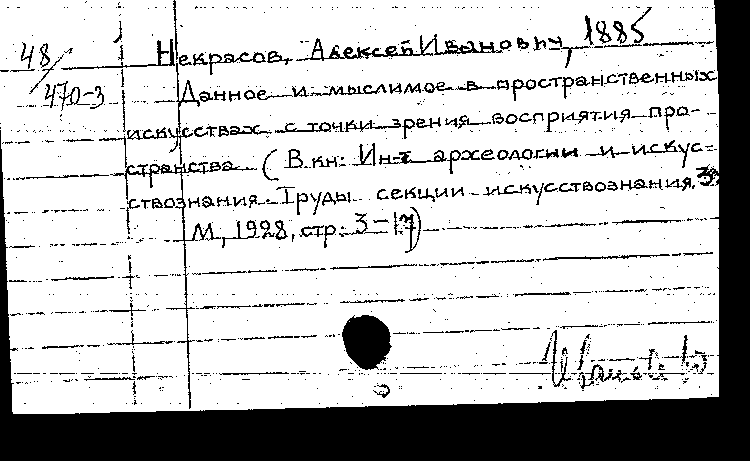 48/
470-3
Некрасов, Алексей Иванович, 1885
Данное и мыслимое в пространственных
искусствах с точки зрения восприятия про-
странства (В кн: Ин-т археологии и искус-
ствознания Труды секции искусствознания. 3.
М, 1928, стр: 3-17)